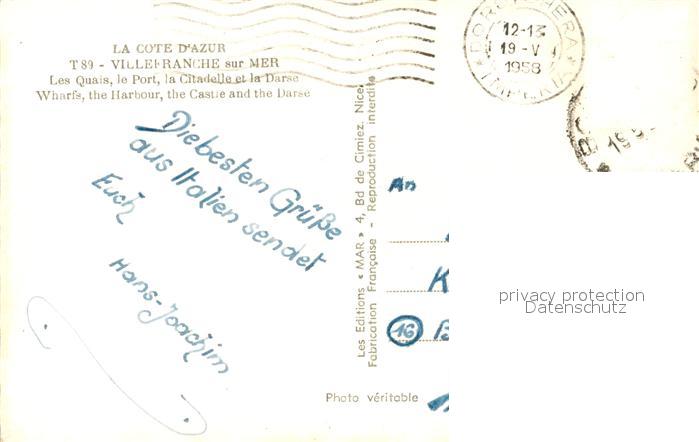 LA COTE D'AZUR
T 89 - VILLEFRANCHE sur MER
Les Quais, le Port, la Citadelle et la Darse
Wharfs, the Harbour, the Castle and the Darse
Diebesten Grüße
aus Italien sendet
Euch
Hans-Joachim
Les Editions « MAR » 4, Bd de Cimiez, Nice.
Fabrication Française - Reproduction interdite
Photo véritable
BORDIGHERA
12-13
19-V
1958
IMPERIA
An
K
16 B
privacy protection
Datenschutz